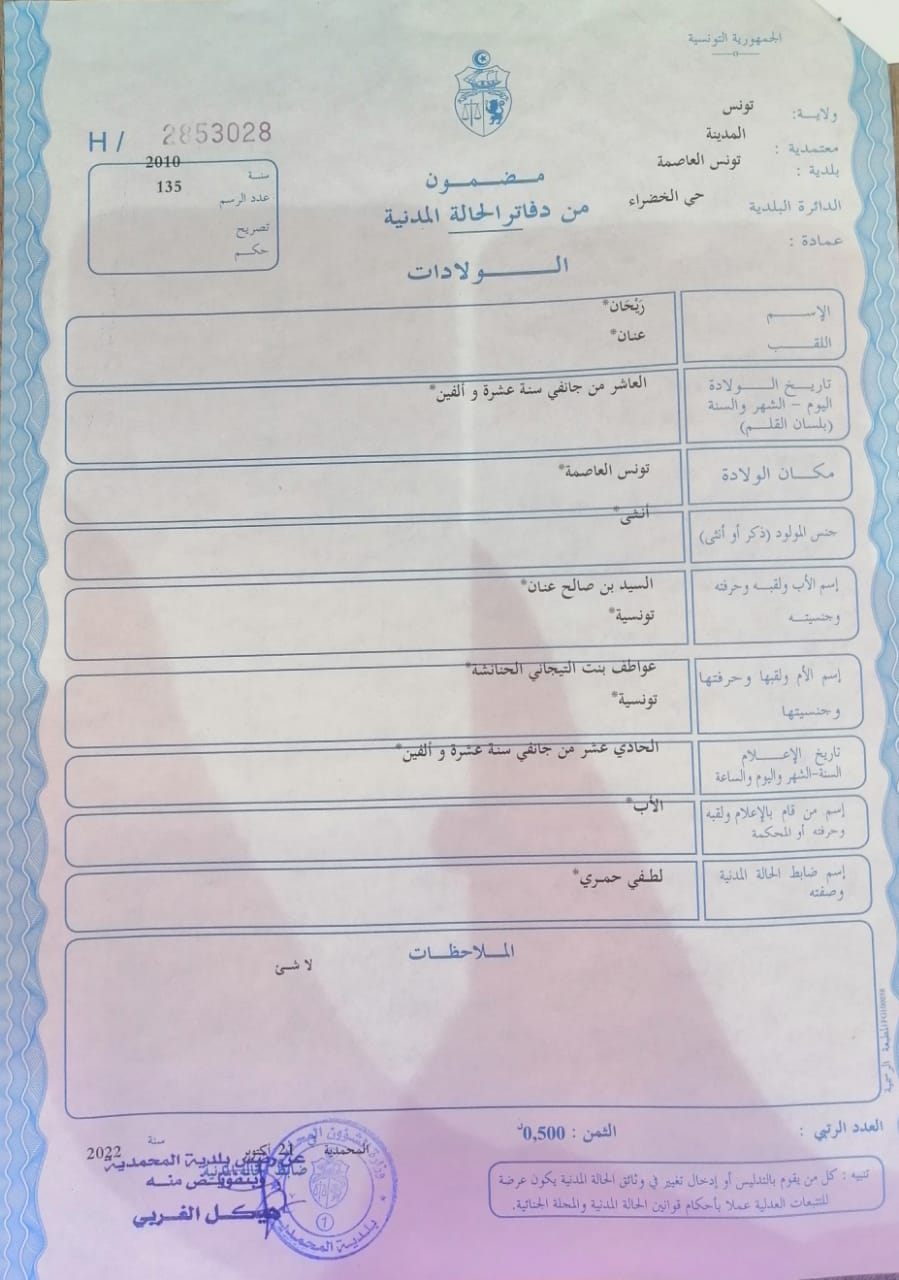 الجمهورية التونسية
ولاية: تونس
معتمدية : المدينة
بلدية : تونس العاصمة
الدائرة البلدية حي الخضراء
عمادة :
H / 2853028
سنة 2010
عدد الرسم 135
تصريح
حكم
مضمون
من دفاتر الحالة المدنية
الولادات
الإسم رَيْحَان*
اللقب عنان*
تاريخ الولادة
اليوم - الشهر والسنة
(بلسان القلم)
العاشر من جانفي سنة عشرة و ألفين*
مكان الولادة تونس العاصمة*
جنس المولود (ذكر أو أنثى) أنثى*
إسم الأب ولقبه وحرفته السيد بن صالح عنان*
وجنسيته تونسية*
إسم الأم ولقبها وحرفتها عواطف بنت التيجاني الحنانشة*
وجنسيتها تونسية*
تاريخ الإعلام الحادي عشر من جانفي سنة عشرة و ألفين*
السنة-الشهر واليوم والساعة
إسم من قام بالإعلام ولقبه الأب*
وحرفته أو المحكمة
إسم ضابط الحالة المدنية لطفي حمري*
وصفته
الملاحظات
لا شئ
المطبعة الرسمية
العدد الرتبي :
الثمن : 0,500د
تنبيه : كل من يقوم بالتدليس أو إدخال تغيير في وثائق الحالة المدنية يكون عرضة
للتتبعات العدلية عملا بأحكام قوانين الحالة المدنية والمجلة الجنائية.
المحمدية في 21 أكتوبر سنة 2022
ضابط الحالة المدنية
عن رئيس بلدية المحمدية
وبتفويض منه
هيكل الغربي
وزارة الشؤون المحلية
بلدية المحمدية
1